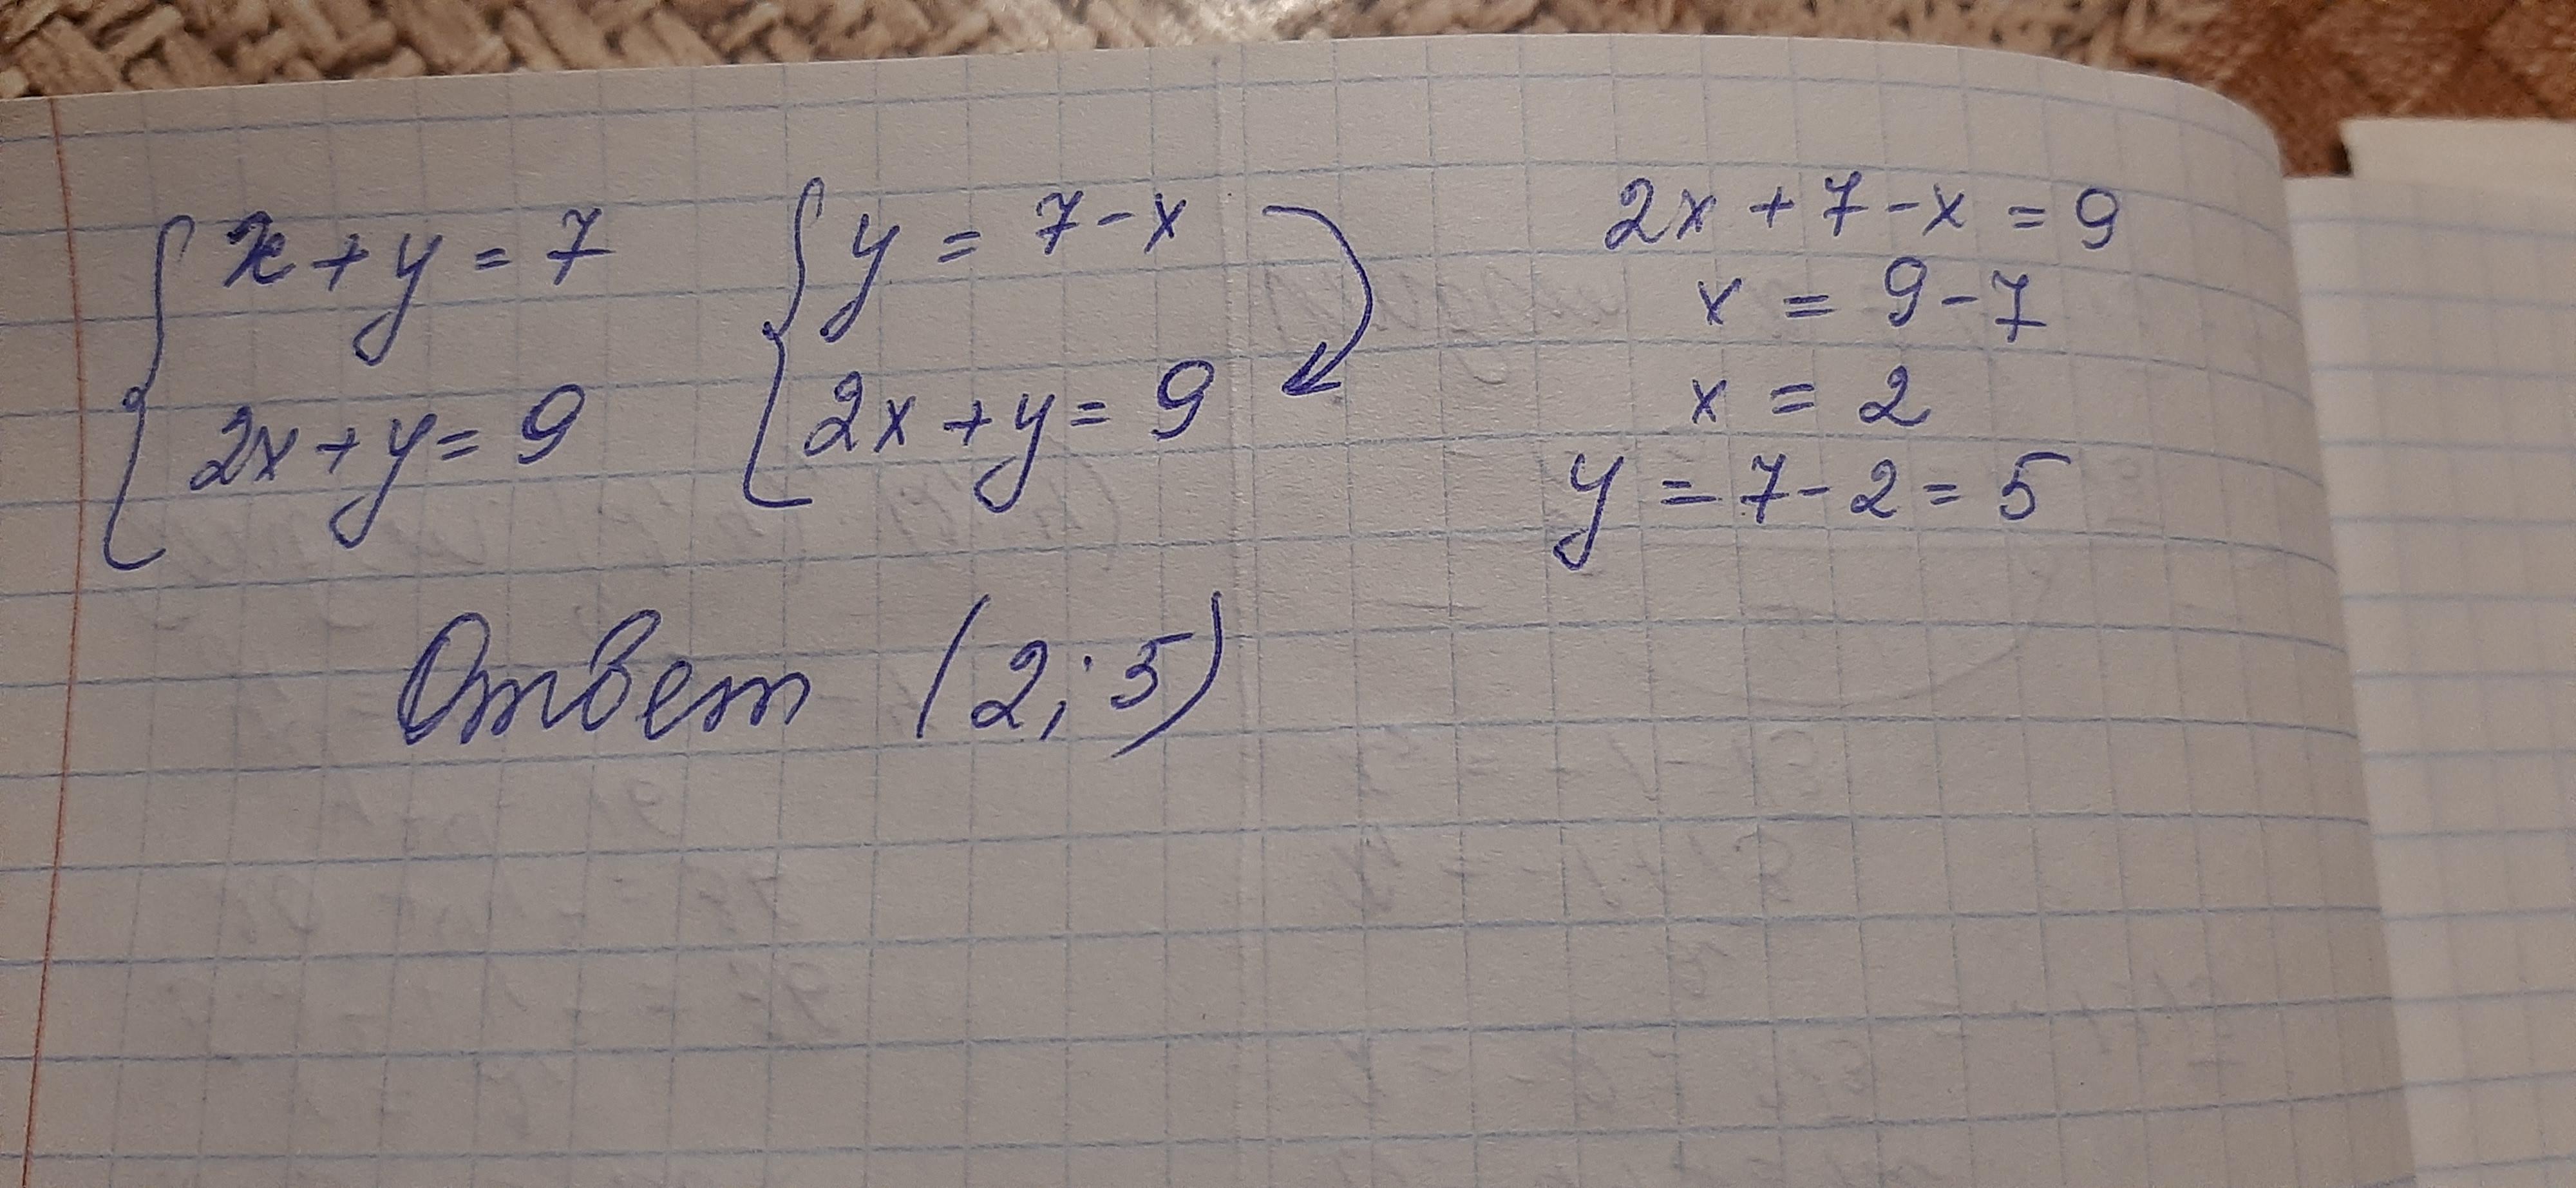 x+y=7
2x+y=9
y=7-x
2x+y=9
2x+7-x=9
x=9-7
x=2
y=7-2=5
Ответ (2;5)